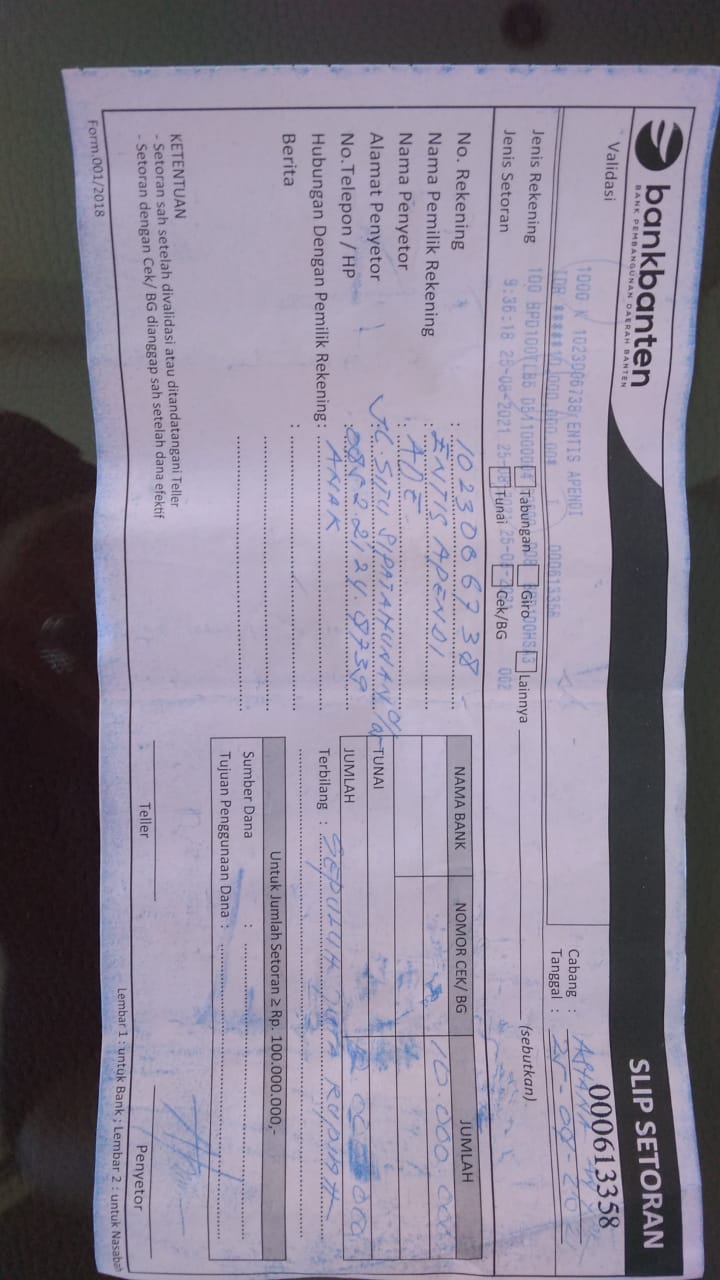 bankbanten
BANK PEMBANGUNAN DAERAH BANTEN
SLIP SETORAN
000613358
Validasi
1000 K 1023006738/ENTIS APENDI
000613358
9:36:18 25-08-2021
002
Cabang :
Tanggal : 25-08-2021
Jenis Rekening Tabungan Giro Lainnya (sebutkan)
Jenis Setoran Tunai Cek/BG
No. Rekening : 1023006738
Nama Pemilik Rekening : ENTIS APENDI
Nama Penyetor : ADE
Alamat Penyetor JL SITU SIPATAHUNAN
No.Telepon / HP :
Hubungan Dengan Pemilik Rekening: ANAK
Berita :
NAMA BANK NOMOR CEK/ BG JUMLAH
10.000.000
TUNAI
JUMLAH
Terbilang : SEPULUH JUTA RUPIAH
Untuk Jumlah Setoran ≥ Rp. 100.000.000,-
Sumber Dana :
Tujuan Penggunaan Dana :
KETENTUAN
- Setoran sah setelah divalidasi atau ditandatangani Teller
- Setoran dengan Cek/ BG dianggap sah setelah dana efektif
Teller Penyetor
Form.001/2018
Lembar 1 : untuk Bank ; Lembar 2 : untuk Nasabah